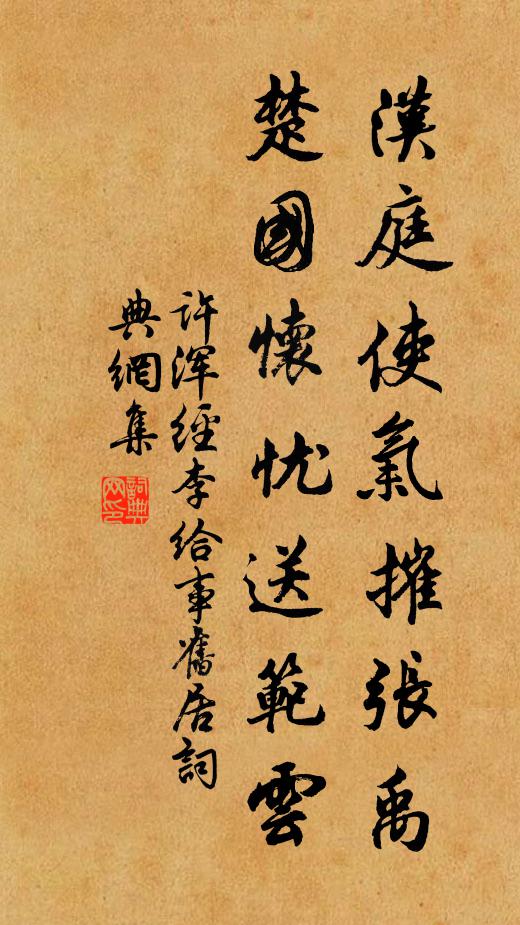 漢庭使氣摧張禹
楚國懷忧送範雲
許渾經李給事舊居詞
典網集
詞典網印